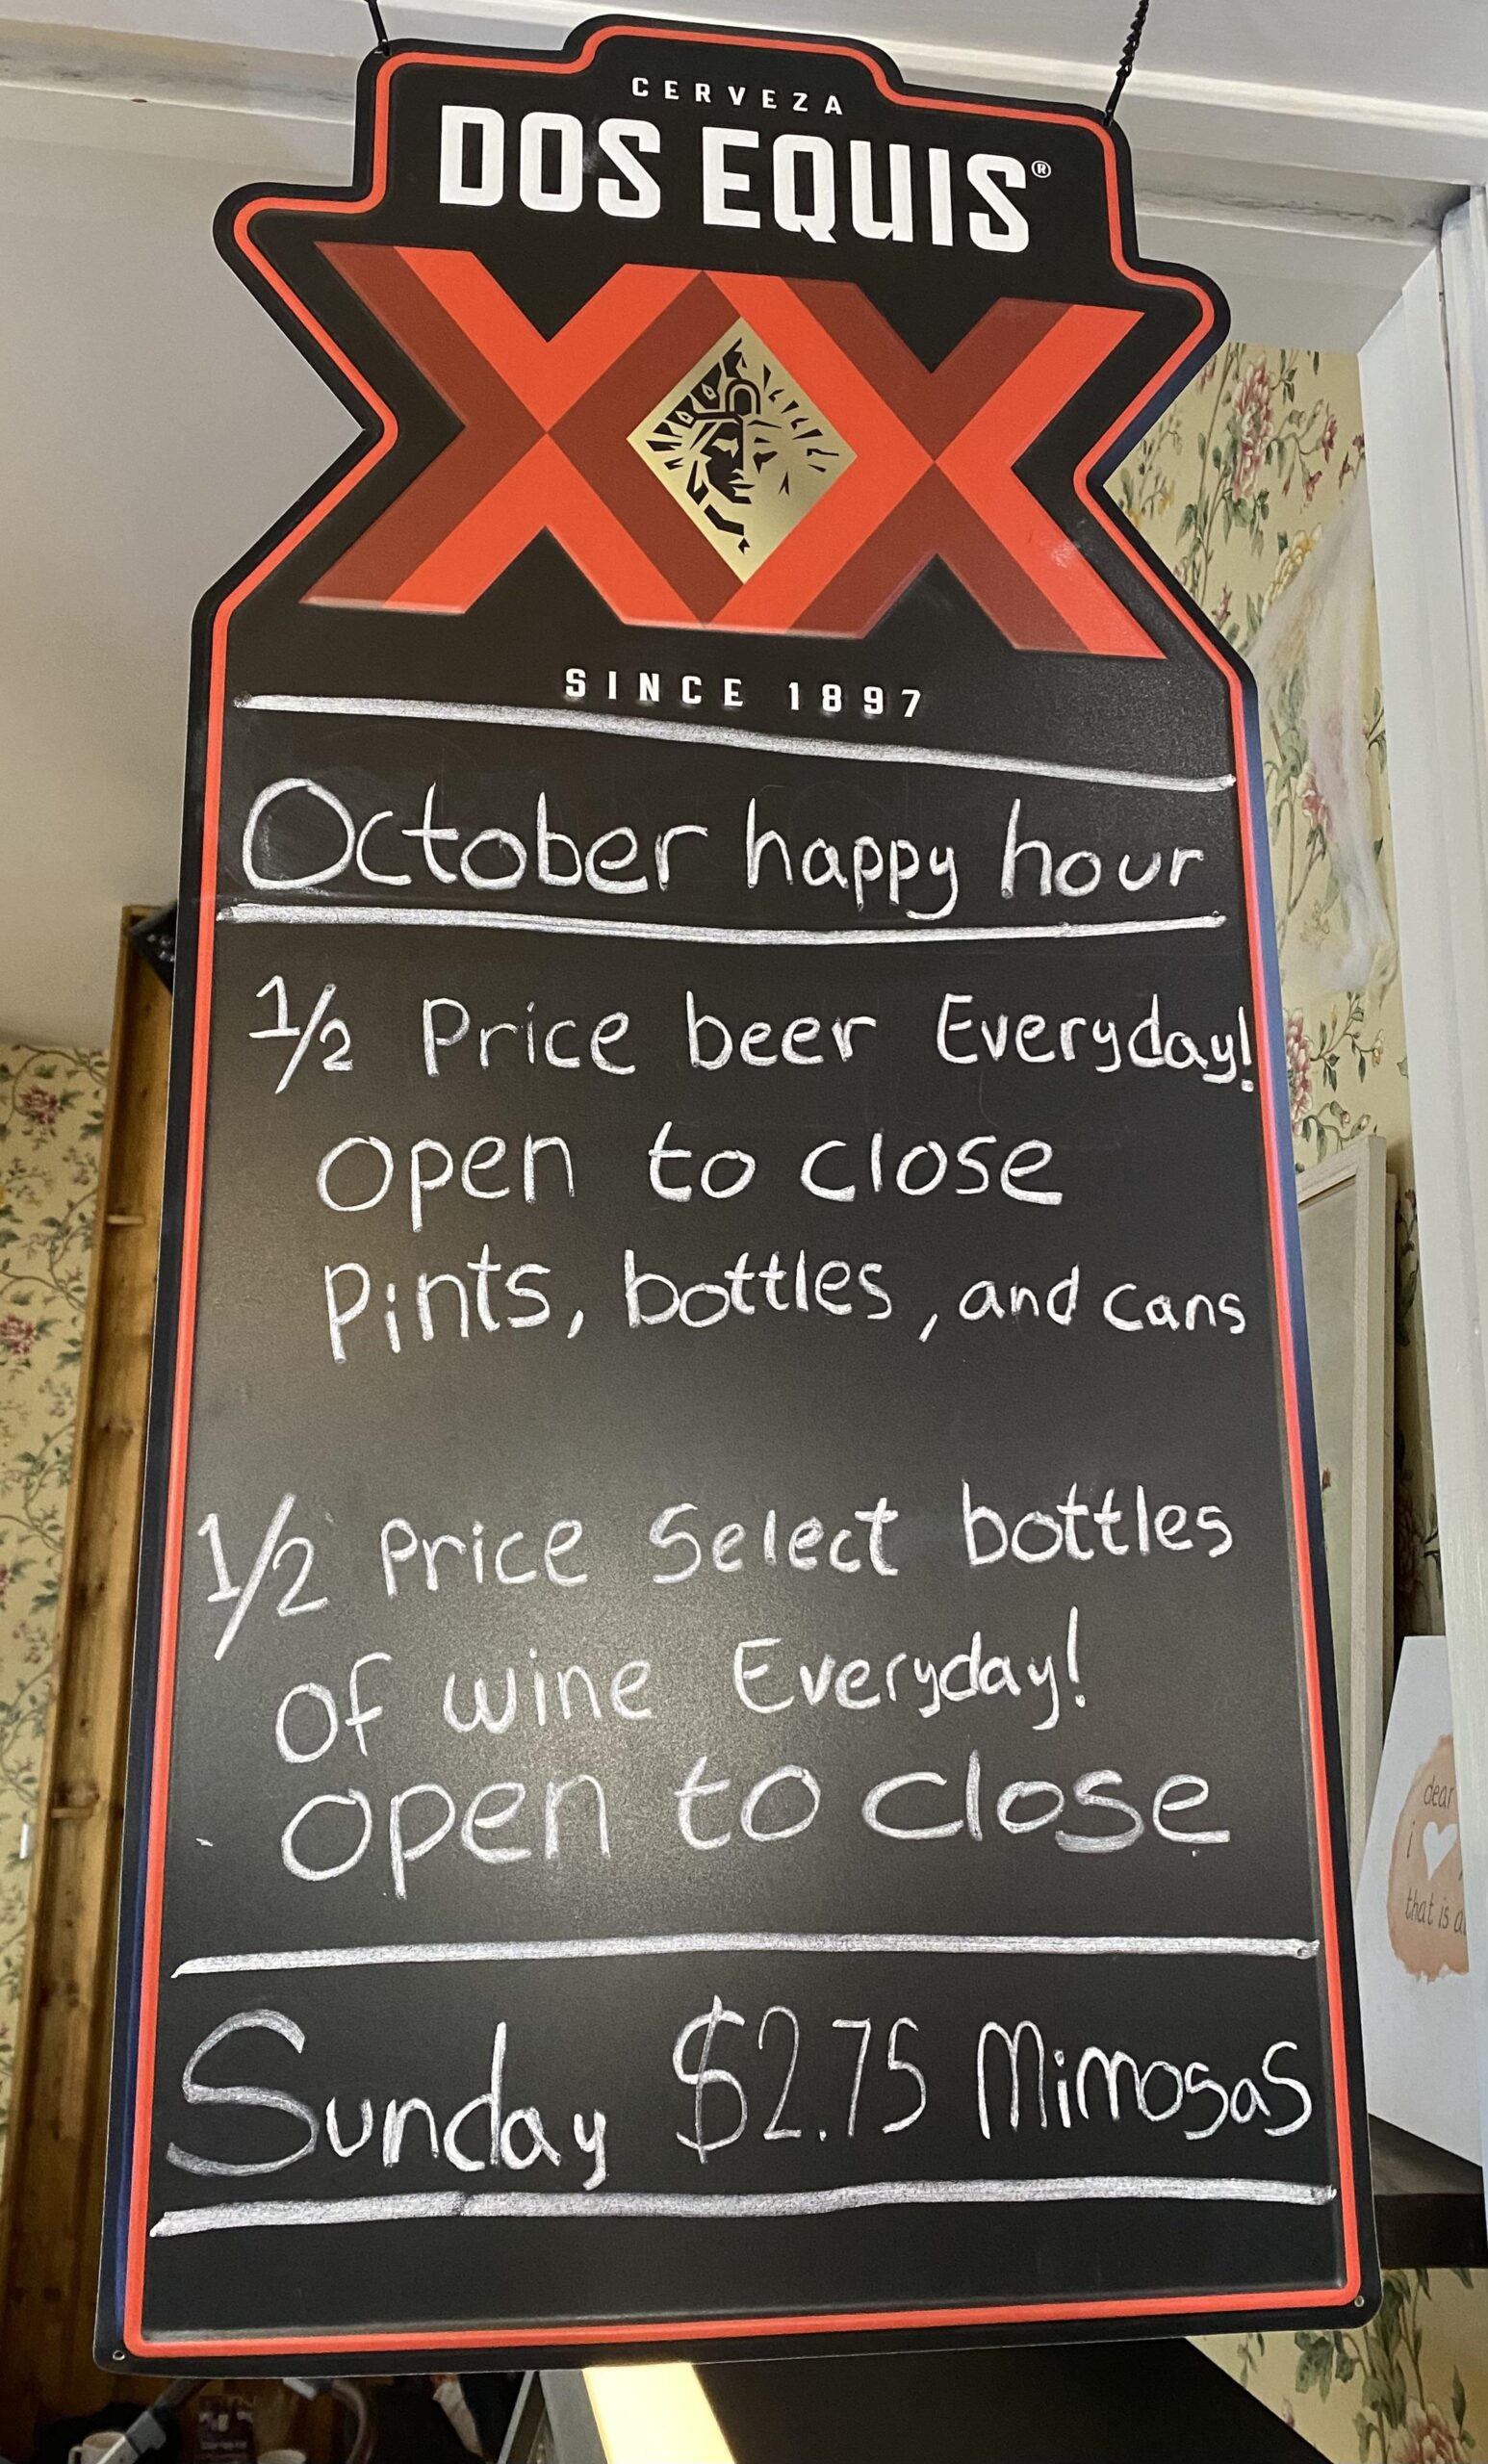 CERVEZA
DOS EQUIS®
XX
SINCE 1897
October happy hour
1/2 Price beer Everyday!
open to close
Pints, bottles, and cans
1/2 Price Select bottles
of wine Everyday!
open to close
Sunday $2.75 Mimosas
dear
i
that is